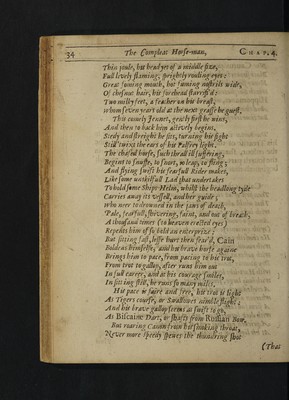 34 The Compleat Horse-man, CHAP. 4.
Thin joule, but head yet of a middle size,
Full lively flaming, sprightly rouling eyes:
Great foming mouth, hot fuming nosthrils wide,
Of chesnut hair, his forehead starrifi'd:
Two milky feet, a feather on his breast,
Whom seven years old at the next grasse he guest.
This comely Jennet, gently first he wins,
And then to back him actively begins.
Stedy and streight he sits, turning his sight
Still 'twixt the ears of his Palfrey light.
The chafed horse, such thrall ill suffering,
Begins to snuffe, to snort, to leap, to fling;
And flying swift his fearfull Rider makes,
Like some unskilfull Lad that undertakes
To hold some Ships Helm, whilst the headlong tyde
Carries away its vessell, and her guide;
Who neer to drowned in the jaws of death,
Pale, fearfull, shivering, faint, and out of breath,
A thousand times (to heaven erected eyes)
Repents him of so bold an enterprize:
But sitting fast, lesse hurt then fear'd, Cain
Boldens himselfe, and his brave horse againe
Brings him to pace, from pacing to his trot,
From trot to gallop, after runs him out
In full career, and at his courage smiles,
In sitting still, he runs so many miles.
His pace is faire and free, his trot is light
As Tigers course, or Swallowes nimble flight;
And his brave gallop seems as swift to go,
As Biscaine Dart, or shafts from Russian Bow.
But roaring Canon from his smoking throat,
Never more speedy spewes the thundring shot
(That